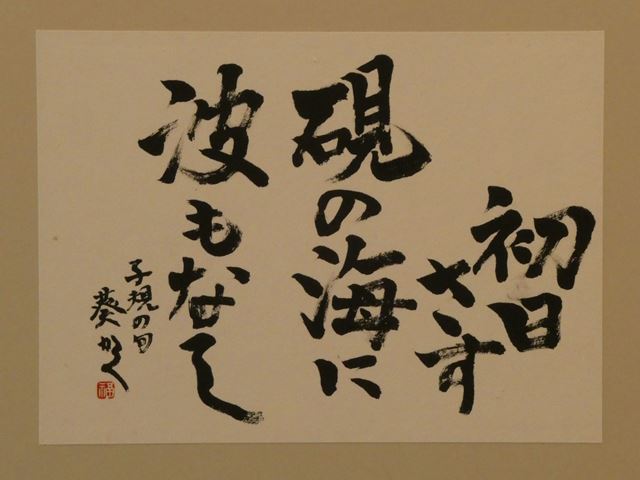 初日
さす
硯の海に
波もなし
子規の句
葵かく
福